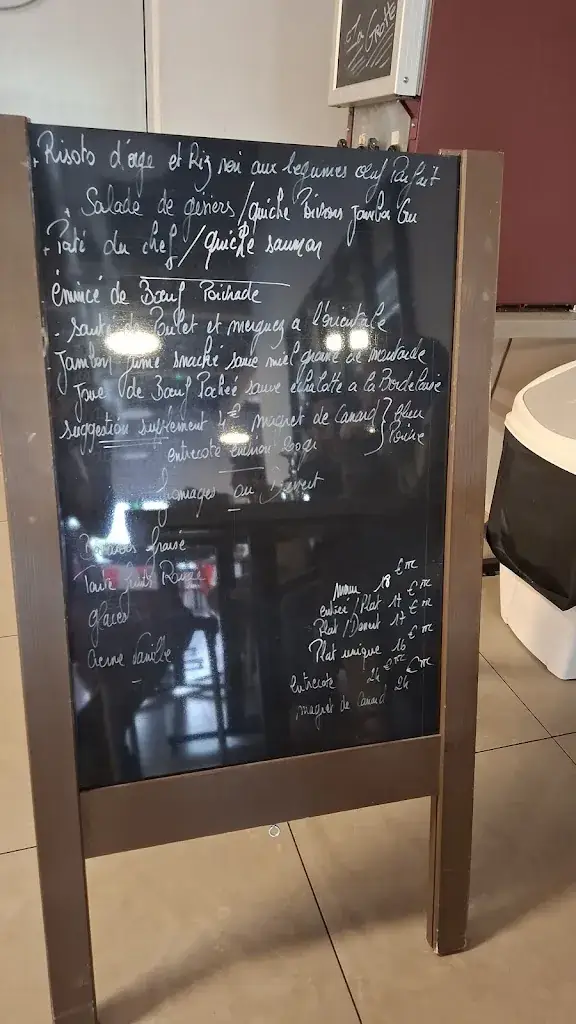 La Grotte
Risoto d'orge et Riz noir aux legumes oeuf Parfait
Salade de gésiers / quiche Poivrons Jambon Cru
Paté du chef / quiche saumon
émincé de Bœuf Poichade
- sauté de Poulet et merguez a l'orientale
- Jambon fumé snacké sauce miel graine de moutarde
Joue de Bœuf Pochée sauce echalotte a la Bordelaise
suggestion suplement 4€ magret de Canard } fleur
entrecote environ 300gr
fromages ou Dessert
fraise
Tarte fruits Rouge
glaces
Creme Vanille
menu 18 €
entrée / Plat 17 €
Plat / Dessert 17 €
Plat unique 16 €
Entrecote 24 €
magret de Canard 24 €